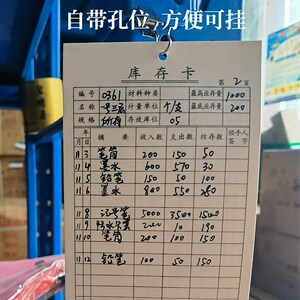 自带孔位 方便可挂
库存卡
第2页
编号 0361 材料种类 最高应存量 1000
名称 计量单位 个/支 最底应存量 200
规格 存放库位 05
年 摘要 收入数 支出数 结存数 经手人签字
月 日
11 3 笔筒 200 150 50
11 4 墨水 600 570 30
11 5 铅笔 150 50 100
11 6 墨水 800 550 250
11 8 记号笔 5000 3500 1500
11 9 200 10 190
11 10 笔筒 200 100 150
11 12 铅笔 100 50 150